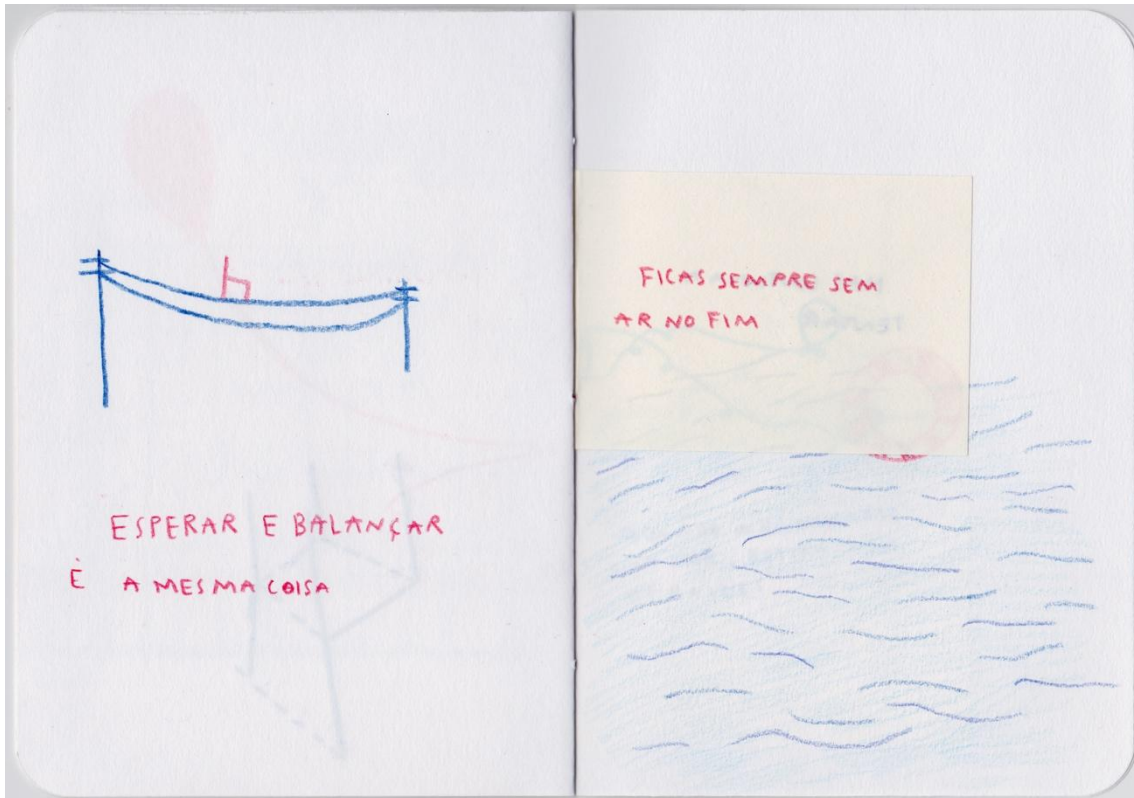 ESPERAR E BALANÇAR
É A MESMA COISA
FICAS SEMPRE SEM
AR NO FIM